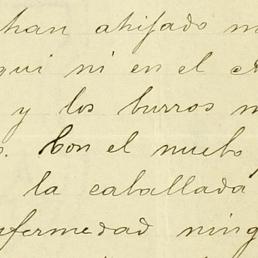 han ahijado m
qui ni en el
y los burros m
s. Con el nuebo
la caballada
nfermedad ning